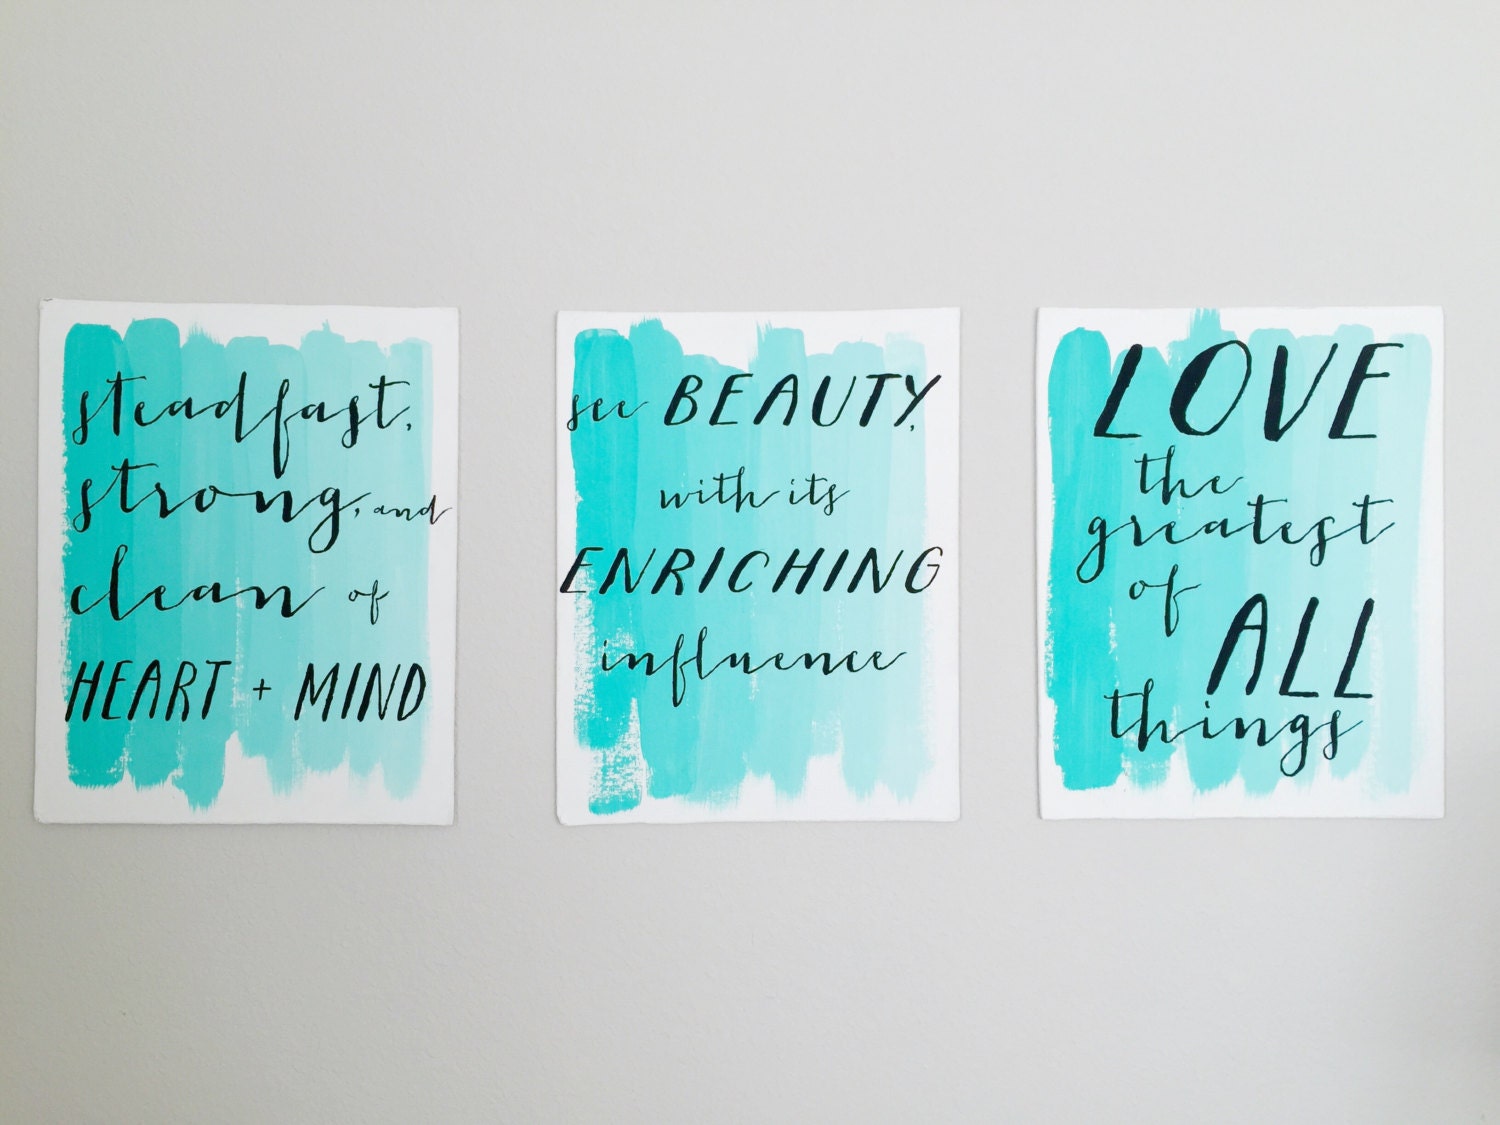 steadfast,
strong, and
clean of
HEART + MIND
see BEAUTY,
with its
ENRICHING
influence
LOVE
the
greatest
of
ALL
things